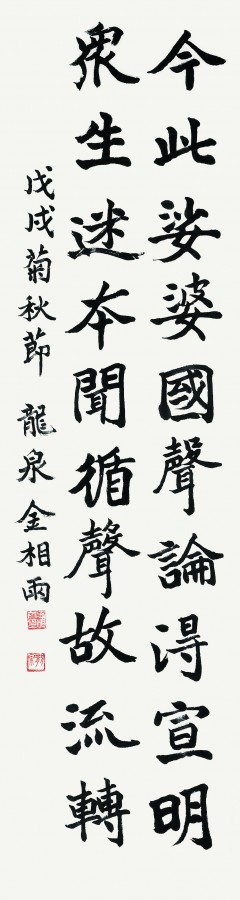 今此娑婆國聲論淂宣明
衆生迷本聞循聲故流轉
戊戌菊秋節 龍泉 金相雨